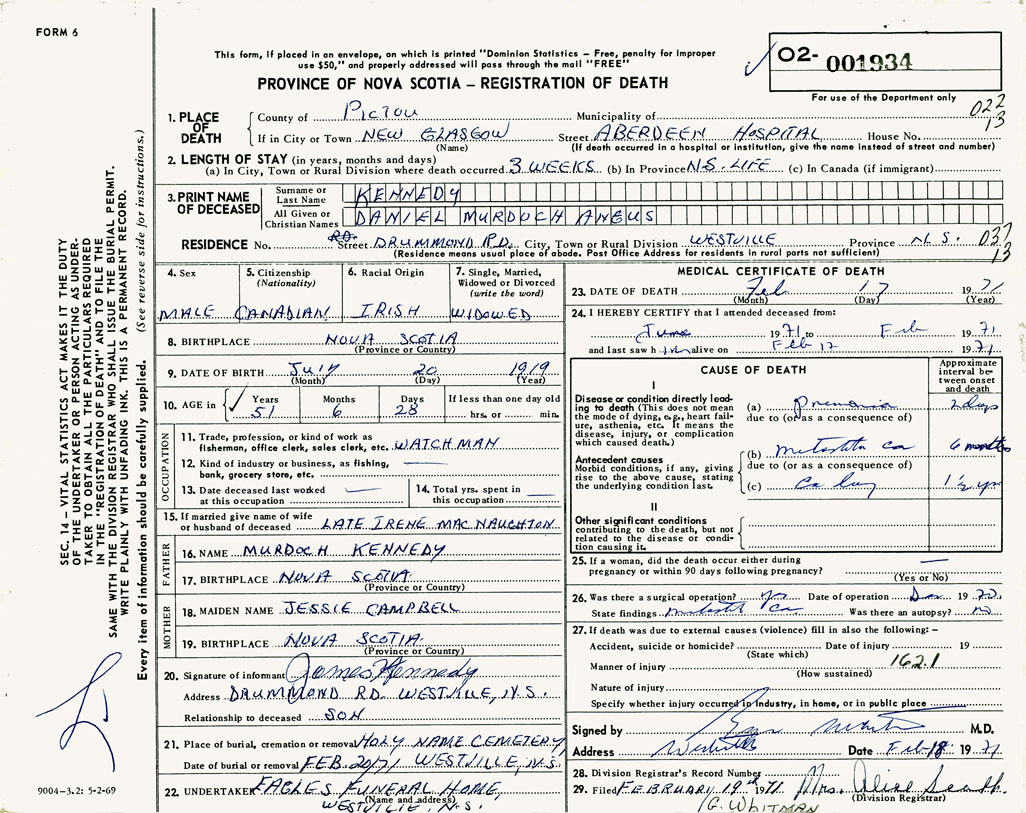 FORM 6
This form, if placed in an envelope, on which is printed "Dominion Statistics – Free, penalty for improper
use $50," and properly addressed will pass through the mail "FREE"
PROVINCE OF NOVA SCOTIA – REGISTRATION OF DEATH
02- 001934
For use of the Department only
022
13
1. PLACE OF DEATH
County of PICTOU Municipality of
If in City or Town NEW GLASGOW Street ABERDEEN HOSPITAL House No.
(Name) (If death occurred in a hospital or institution, give the name instead of street and number)
2. LENGTH OF STAY (in years, months and days)
(a) In City, Town or Rural Division where death occurred 3 WEEKS (b) In Province N.S. LIFE (c) In Canada (if immigrant)
3. PRINT NAME OF DECEASED
Surname or Last Name KENNEDY
All Given or Christian Names DANIEL MURDOCH ANGUS
RESIDENCE No. RD. Street DRUMMOND RD. City, Town or Rural Division WESTVILLE Province N.S. 037
13
(Residence means usual place of abode. Post Office Address for residents in rural parts not sufficient)
4. Sex MALE
5. Citizenship (Nationality) CANADIAN
6. Racial Origin IRISH
7. Single, Married, Widowed or Divorced (write the word) WIDOWED
8. BIRTHPLACE NOVA SCOTIA
(Province or Country)
9. DATE OF BIRTH July 20 1919
(Month) (Day) (Year)
10. AGE in Years 51 Months 6 Days 28 If less than one day old hrs. or min.
OCCUPATION
11. Trade, profession, or kind of work as fisherman, office clerk, sales clerk, etc. WATCHMAN
12. Kind of industry or business, as fishing, bank, grocery store, etc.
13. Date deceased last worked at this occupation
14. Total yrs. spent in this occupation
15. If married give name of wife or husband of deceased LATE IRENE MACNAUGHTON
FATHER
16. NAME MURDOCH KENNEDY
17. BIRTHPLACE NOVA SCOTIA
(Province or Country)
MOTHER
18. MAIDEN NAME JESSIE CAMPBELL
19. BIRTHPLACE NOVA SCOTIA
(Province or Country)
20. Signature of informant James Kennedy
Address DRUMMOND RD. WESTVILLE, N.S.
Relationship to deceased SON
21. Place of burial, cremation or removal HOLY NAME CEMETERY
Date of burial or removal FEB. 20/71 WESTVILLE, N.S.
22. UNDERTAKER EAGLES FUNERAL HOME,
(Name and address)
WESTVILLE N.S.
MEDICAL CERTIFICATE OF DEATH
23. DATE OF DEATH Feb 17 1971
(Month) (Day) (Year)
24. I HEREBY CERTIFY that I attended deceased from:
June 1971 to Feb 1971
and last saw h im alive on Feb 17 1971
CAUSE OF DEATH
Approximate interval between onset and death
I
Disease or condition directly leading to death (This does not mean the mode of dying, e.g., heart failure, asthenia, etc. It means the disease, injury, or complication which caused death.)
(a) pneumonia 2 days
due to (or as a consequence of)
Antecedent causes
Morbid conditions, if any, giving rise to the above cause, stating the underlying condition last.
(b) metastatic ca 6 months
due to (or as a consequence of)
(c) Ca lung 1½ yr
II
Other significant conditions contributing to the death, but not related to the disease or condition causing it.
25. If a woman, did the death occur either during pregnancy or within 90 days following pregnancy?
(Yes or No)
26. Was there a surgical operation? yes Date of operation Dec 1970.
State findings metastt Ca Was there an autopsy? no
27. If death was due to external causes (violence) fill in also the following: –
Accident, suicide or homicide? Date of injury 19
(State which)
Manner of injury 162.1
(How sustained)
Nature of injury
Specify whether injury occurred in industry, in home, or in public place
Signed by M.D.
Address Westville Date Feb 18 1971
28. Division Registrar's Record Number
29. Filed FEBRUARY 19th 1971 Mrs. Alice
(Division Registrar)
G. WHITMAN
SEC. 14 – VITAL STATISTICS ACT MAKES IT THE DUTY
OF THE UNDERTAKER OR PERSON ACTING AS UNDER-
TAKER TO OBTAIN ALL THE PARTICULARS REQUIRED
IN THE "REGISTRATION OF DEATH" AND TO FILE THE
SAME WITH THE DIVISION REGISTRAR WHO SHALL ISSUE THE BURIAL PERMIT.
WRITE PLAINLY WITH UNFADING INK. THIS IS A PERMANENT RECORD.
Every item of information should be carefully supplied. (See reverse side for instructions.)
9004–3.2: 5-2-69